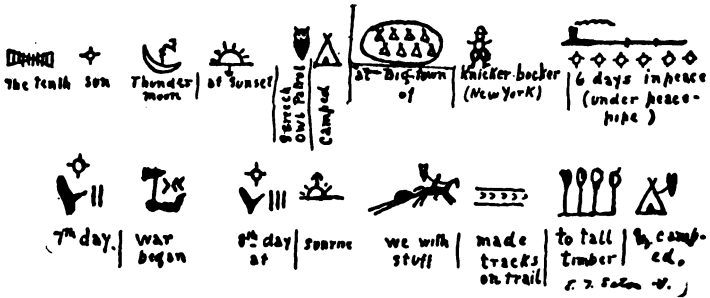 The Tenth Sun Thunder moon at Sunset Screech Owl Patrol Camped at Big town of Knicker-bocker (New York) 6 days in peace (under peace-pipe)
7th day, war began 8th day at Sunrise we with stuff made tracks on trail to tall timber & camp-ed.